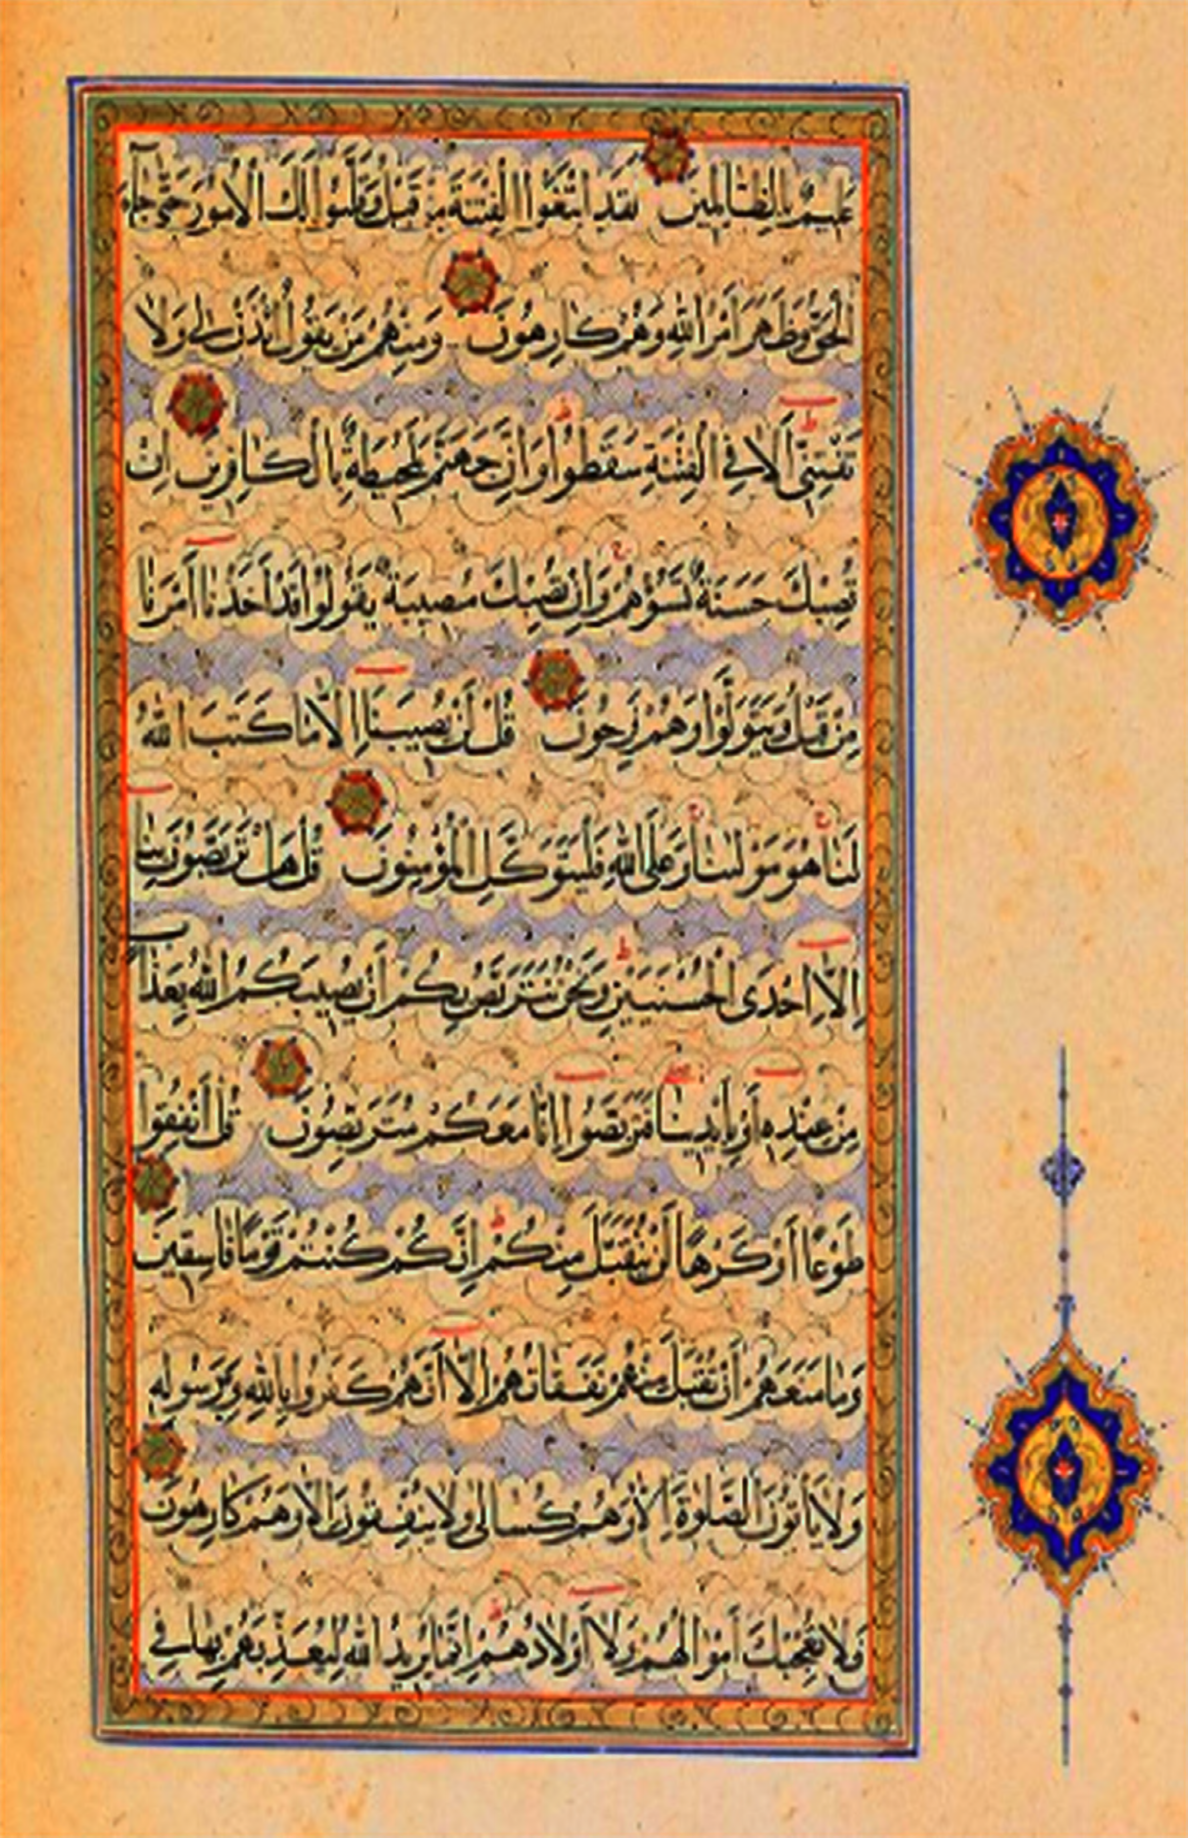 عَلِيمٌ بِالظَّالِمِينَ لَقَدِ ابْتَغَوُا الْفِتْنَةَ مِنْ قَبْلُ وَقَلَّبُوا لَكَ الْأُمُورَ حَتَّى جَاءَ
الْحَقُّ وَظَهَرَ أَمْرُ اللَّهِ وَهُمْ كَارِهُونَ وَمِنْهُمْ مَنْ يَقُولُ ائْذَنْ لِي وَلَا
تَفْتِنِّي أَلَا فِي الْفِتْنَةِ سَقَطُوا وَإِنَّ جَهَنَّمَ لَمُحِيطَةٌ بِالْكَافِرِينَ إِنْ
تُصِبْكَ حَسَنَةٌ تَسُؤْهُمْ وَإِنْ تُصِبْكَ مُصِيبَةٌ يَقُولُوا قَدْ أَخَذْنَا أَمْرَنَا
مِنْ قَبْلُ وَيَتَوَلَّوْا وَهُمْ فَرِحُونَ قُلْ لَنْ يُصِيبَنَا إِلَّا مَا كَتَبَ اللَّهُ
لَنَا هُوَ مَوْلَانَا وَعَلَى اللَّهِ فَلْيَتَوَكَّلِ الْمُؤْمِنُونَ قُلْ هَلْ تَرَبَّصُونَ بِنَا
إِلَّا إِحْدَى الْحُسْنَيَيْنِ وَنَحْنُ نَتَرَبَّصُ بِكُمْ أَنْ يُصِيبَكُمُ اللَّهُ بِعَذَابٍ
مِنْ عِنْدِهِ أَوْ بِأَيْدِينَا فَتَرَبَّصُوا إِنَّا مَعَكُمْ مُتَرَبِّصُونَ قُلْ أَنْفِقُوا
طَوْعًا أَوْ كَرْهًا لَنْ يُتَقَبَّلَ مِنْكُمْ إِنَّكُمْ كُنْتُمْ قَوْمًا فَاسِقِينَ
وَمَا مَنَعَهُمْ أَنْ تُقْبَلَ مِنْهُمْ نَفَقَاتُهُمْ إِلَّا أَنَّهُمْ كَفَرُوا بِاللَّهِ وَبِرَسُولِهِ
وَلَا يَأْتُونَ الصَّلَوةَ إِلَّا وَهُمْ كُسَالَى وَلَا يُنْفِقُونَ إِلَّا وَهُمْ كَارِهُونَ
فَلَا تُعْجِبْكَ أَمْوَالُهُمْ وَلَا أَوْلَادُهُمْ إِنَّمَا يُرِيدُ اللَّهُ لِيُعَذِّبَهُمْ بِهَا فِي